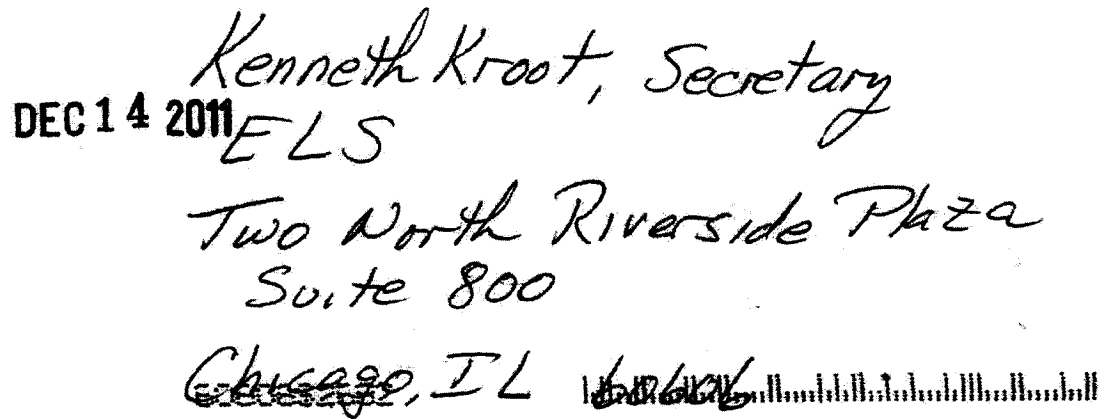 Kenneth Kroot, Secretary
DEC 14 2011
ELS
Two North Riverside Plaza
Suite 800
Chicago, IL 60606